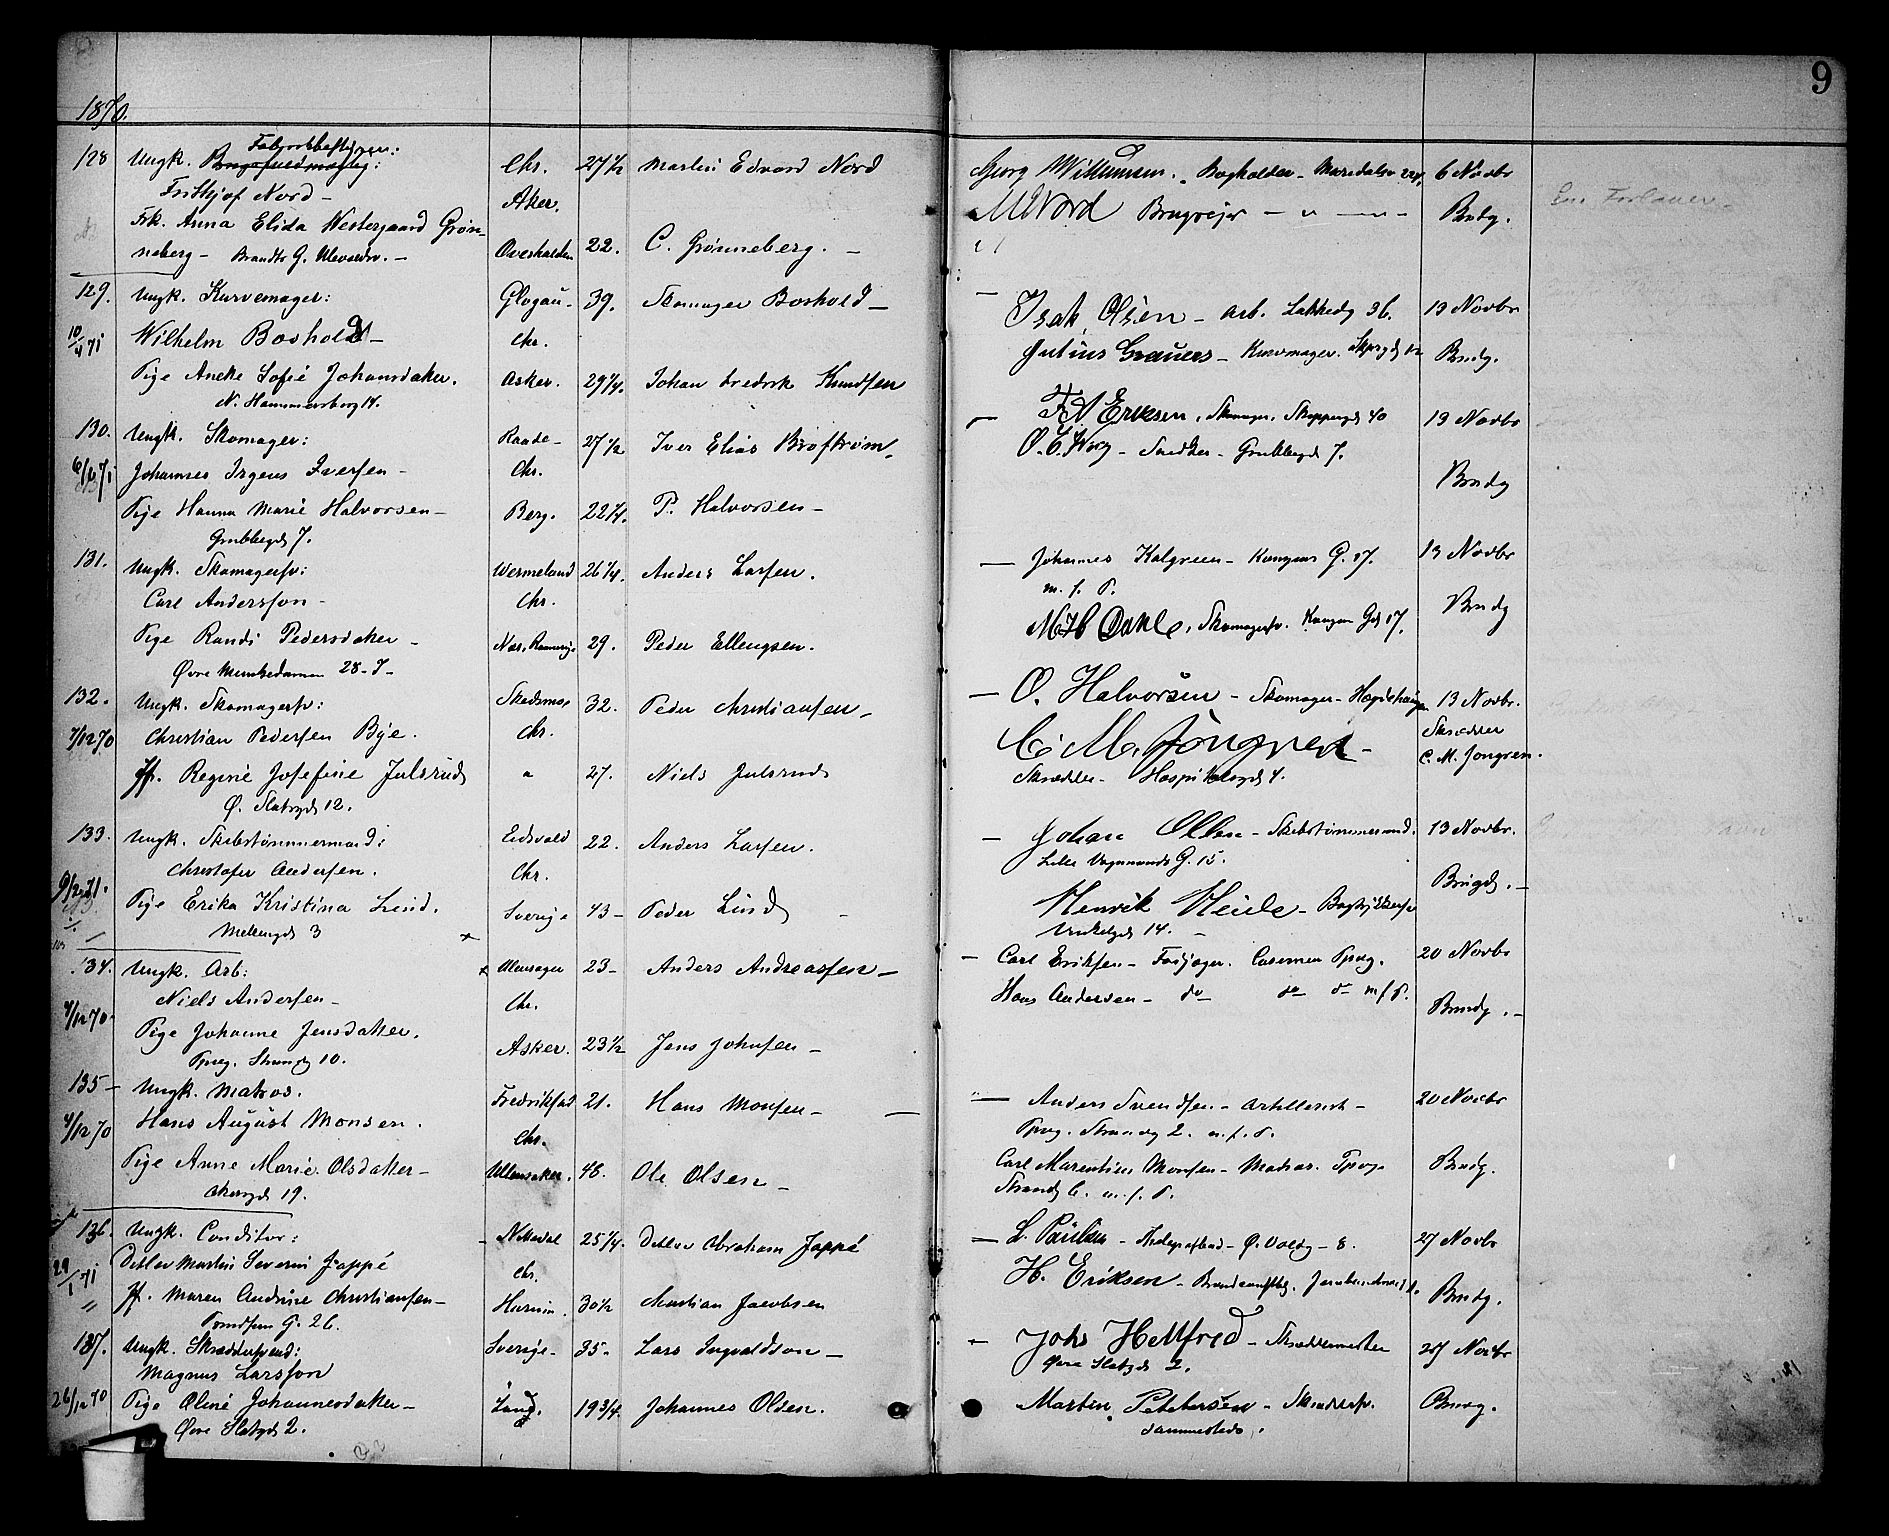 1870.
9
128 Ungk. Fabrikbestyrer: Chr. 27 1/2 Martin Edvard Nord
Frithjof Nord - Aker.
Frk. Anna Elida Westergaard Grøn- Overhalden 22. C. Grønneberg. -
neberg - Brandts G. Ulevoldsv. -
Georg Willumsen. Bogholder - Maridalsv 6 Novbr
M Nord Brugeier Brudg.
En Forlover.
129. Ungk. Kurvemager: Glogau - 39. Skomager Boshold -
10/4 71 Wilhelm Boshold - Chr.
Pige Aneke Sofie Johansdatter. Asker. 29 1/4. Johan Fredrik Knudsen
N. Hammersborg 14.
Isak Olsen - Arb. Lakkedg 36. 13 Novbr
Julius Grauers - Kurvemager. Brudg.
130. Ungk. Skomager: Raade - 27 1/2 Iver Elias Brostrøm
6/6 71 Johannes Irgens Iversen - Chr.
Pige Hanna Marie Halvorsen - Berg. 22 1/4. P. Halvorsen -
Grubbegd 7.
F A Eriksen, Skomager, Skippergd 40 19 Novbr
Snedker - Grubbegd 7.
Brudg
131. Ungk. Skomagersv: Wermeland 26 1/4. Anders Larsen.
Carl Andersson - Chr.
Pige Randi Pedersdatter - Nas, Romerige 29. Peder Ellengsen.
Øvre Munkedammen 28 - J -
Johannes Kalgreen - Kongens G. 17. 13 Novbr
m. f. P.
M H Dahle, Skomagersv. Kongens Gd 17. Brudg
132. Ungk. Skomagersv: Skedsmo 32. Peder Christiansen -
7/12 70 Christian Pedersen Bye. Chr.
Jfr. Regine Josefine Julsrud " 27. Niels Julsrud
Ø. Slotsgd 12.
O. Halvorsen - Skomager - Hegdehaugen 13 Novbr.
C. M. Jongren - Skrædder
Skrædder - Hospitalsgd 4. C. M. Jongren.
133. Ungk. Skibstømmermand: Eidsvold 22. Anders Larsen.
Christofer Andersen. Chr.
9/2 71. Pige Erika Kristina Lind. Sverige 43 - Peder Lind -
Møllergd 3
Johan Olsen - Skibstømmermand. 13 Novbr.
Lille Vognmands G. 15.
Henrik Heide - Bogtrykkersv Brugd. -
Vinkelgd 14. -
134. Ungk. Arb: Ullensager 23 - Anders Andreassen -
Niels Andersen - Chr.
7/12 70. Pige Johanne Jensdatter. Asker. 23 1/2 Jens Johnsen -
Pprvg. Strandg 10.
Carl Eriksen - Casernen Pprvg. 20 Novbr
Hans Andersen - do do do m f P. Brudg. -
135 - Ungk. Matros. Fredrikstad 21. Hans Monsen -
4/12 70 Hans August Monsen. Chr.
Pige Anne Marie Olsdatter - Ullensaker. 48. Ole Olsen -
Akersgd 19.
Anders Svendsen - Artillerist - 20 Novbr
Pprvg. Strandg 2. m. f. P.
Carl Marentius Monsen - Matros. Pprvg. Brudg.
Strandg 6. m. f. P.
136. Ungk. Conditor: Nittedal 25 1/4. Detlev Abraham Jappé
29/1 71 Detlev Martin Severin Jappé Chr.
" Jfr. Maren Andrine Christiansen - Hurum. 30 1/2 Christian Jacobsen
Tomtsen G. 26.
L. Paulsen - Ø. Voldg - 8. 27 Novbr
H. Eriksen - Brudg.
137. Ungk. Skræddersvend: Sverige - 35 - Lars Ingvaldson -
Magnus Larsson
26/12 70 Pige Oline Johannesdatter - Land. 19 3/4. Johannes Olsen.
Øvre Slotsgd 2.
Johs Hellfred - Skræddermester 27 Novbr
Øvre Slotsgd 2.
Martin Pettersen - Skræddersv. Brudg.
sammesteds.